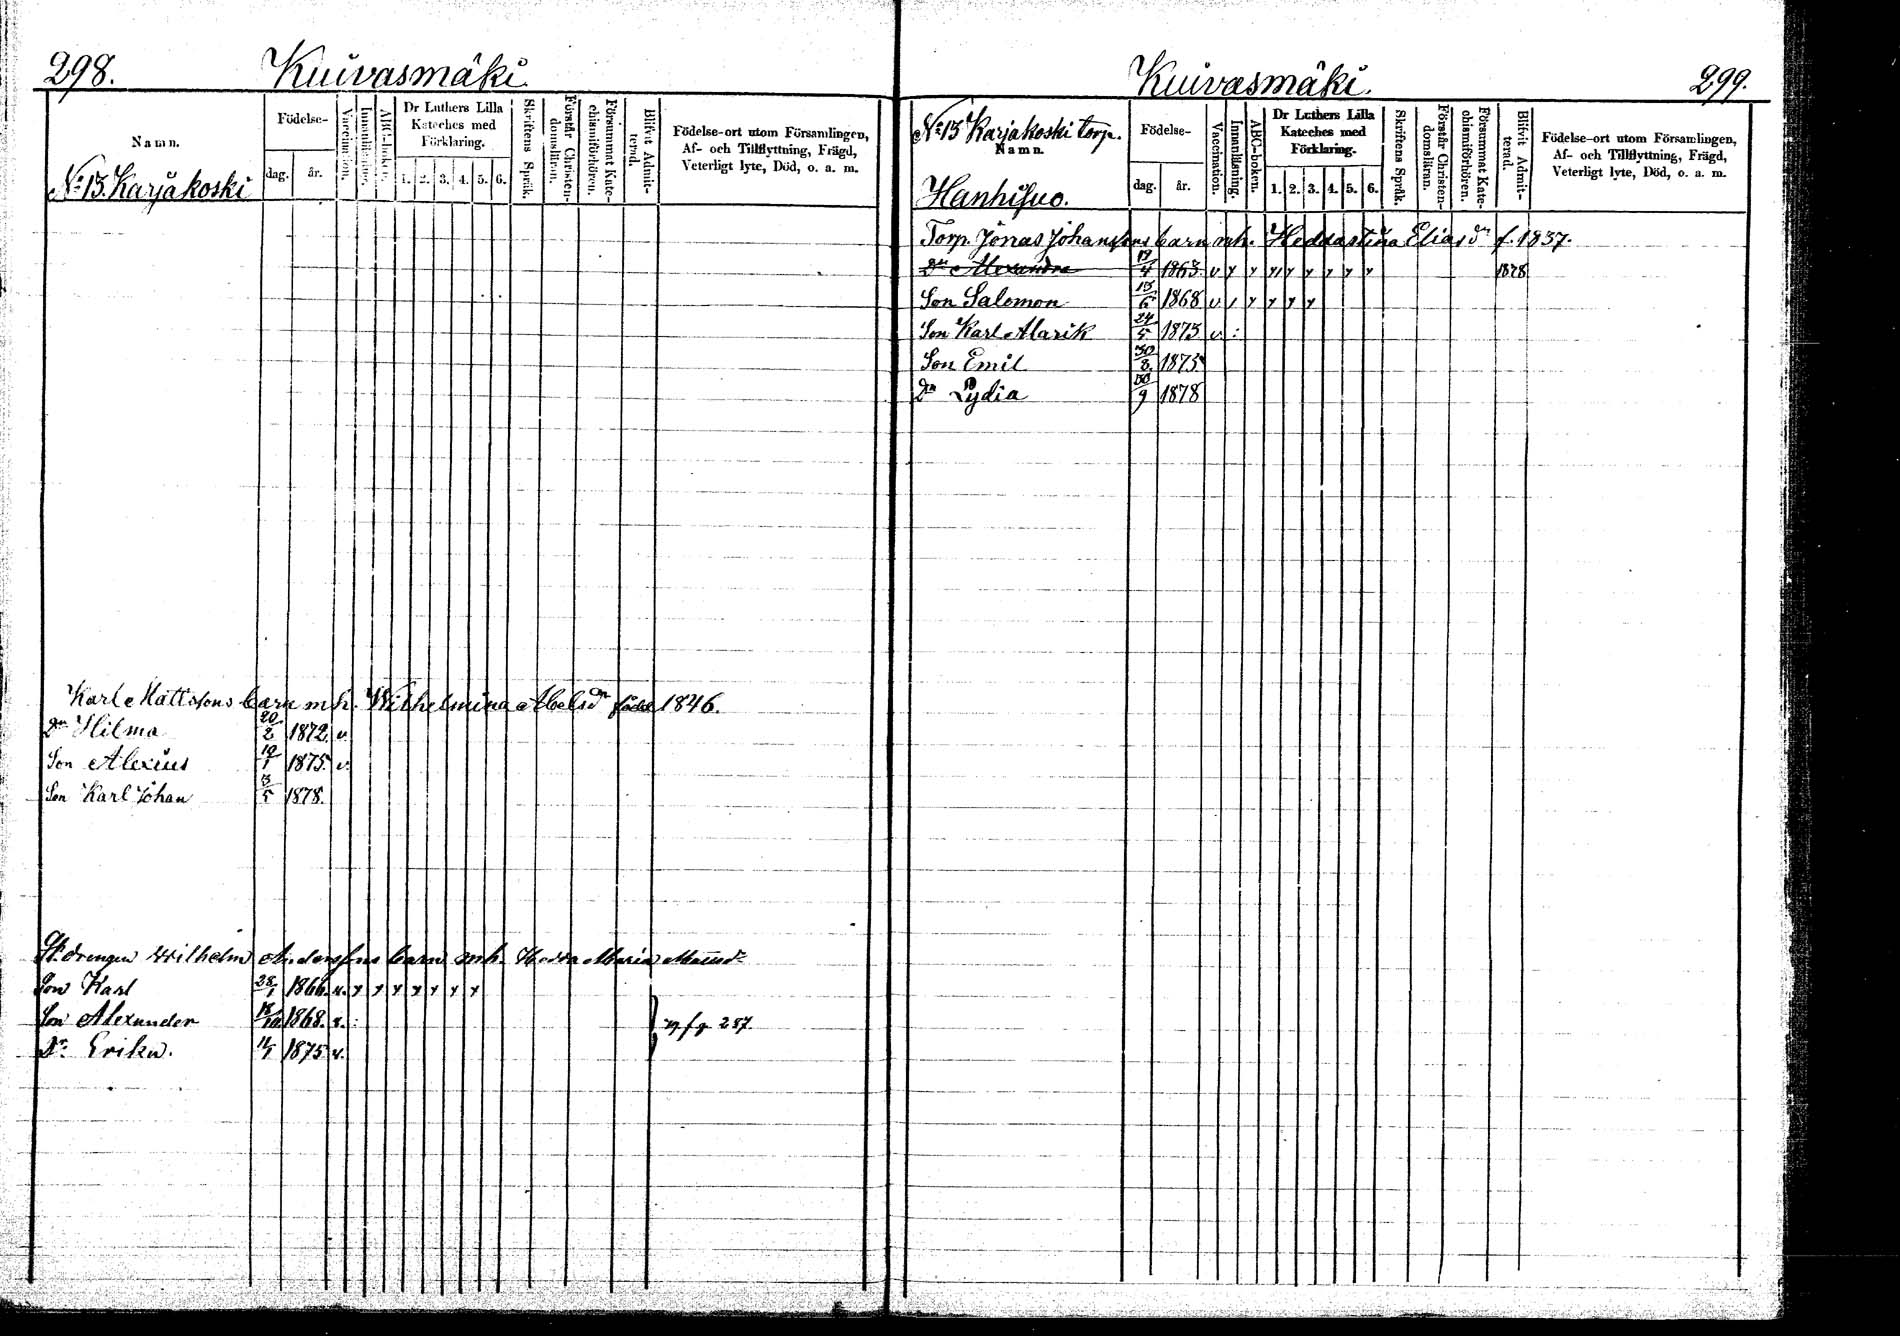 298. Kuivasmäki
Namn.
Födelse-
dag. år.
Vaccination.
Innanläsning.
ABC-boken.
Dr Luthers Lilla Kateches med Förklaring.
1. 2. 3. 4. 5. 6.
Skriftens Språk.
Förstår Christendomsläran.
Försummat Katechismiförhören.
Blifvit Admitterad.
Födelse-ort utom Församlingen,
Af- och Tillflyttning, Frägd,
Veterligt lyte, Död, o. a. m.
No 15. Karjakoski
Karl Mattssons barn m h. Wilhelmina Abelsdr född 1846.
Dr Hilma 20/2 1872. v.
Son Alexius 19/1 1875. v.
Son Karl Johan 3/5 1878.
drengen Wilhelm Anderssons barn m h. Hedda Maria
Son Karl 28/1 1866. v. y y y y y y y
Son Alexander 1868. v. :
Dr Erika. 11/1 1875 v.
257.
Kuivasmäki. 299.
No 15 Karjakoski torp.
Namn.
Födelse-
dag. år.
Vaccination.
Innanläsning.
ABC-boken.
Dr Luthers Lilla Kateches med Förklaring.
1. 2. 3. 4. 5. 6.
Skriftens Språk.
Förstår Christendomsläran.
Försummat Katechismiförhören.
Blifvit Admitterad.
Födelse-ort utom Församlingen,
Af- och Tillflyttning, Frägd,
Veterligt lyte, Död, o. a. m.
Hanhisuo.
Torp. Jonas Johanssons barn m h. Hedda Stina Eliasdr f. 1837.
Dr Alexandra 19/4 1863. v y y y y y y y y 1878
Son Salomon 1868 v. / y y y y
Son Karl Alarik 24/5 1873 v. :
Son Emil 30/3. 1875
Dr Lydia 30/9 1878